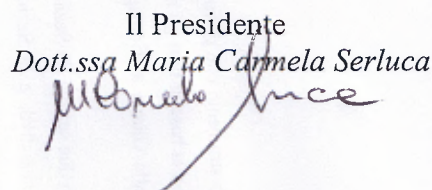 Il Presidente
Dott.ssa Maria Carmela Serluca